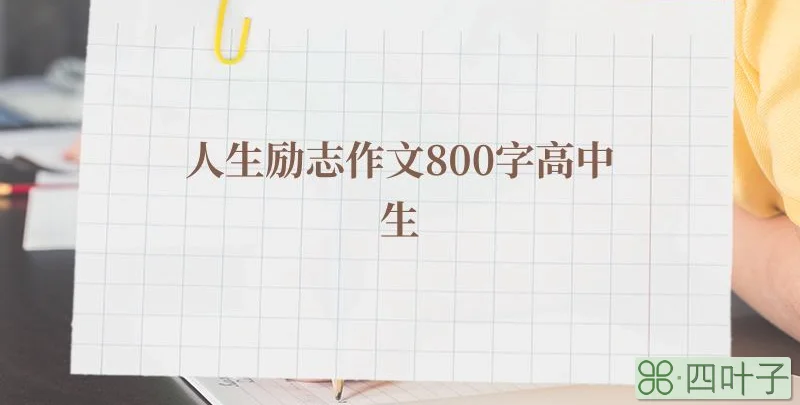 人生励志作文800字高中
生
四叶子